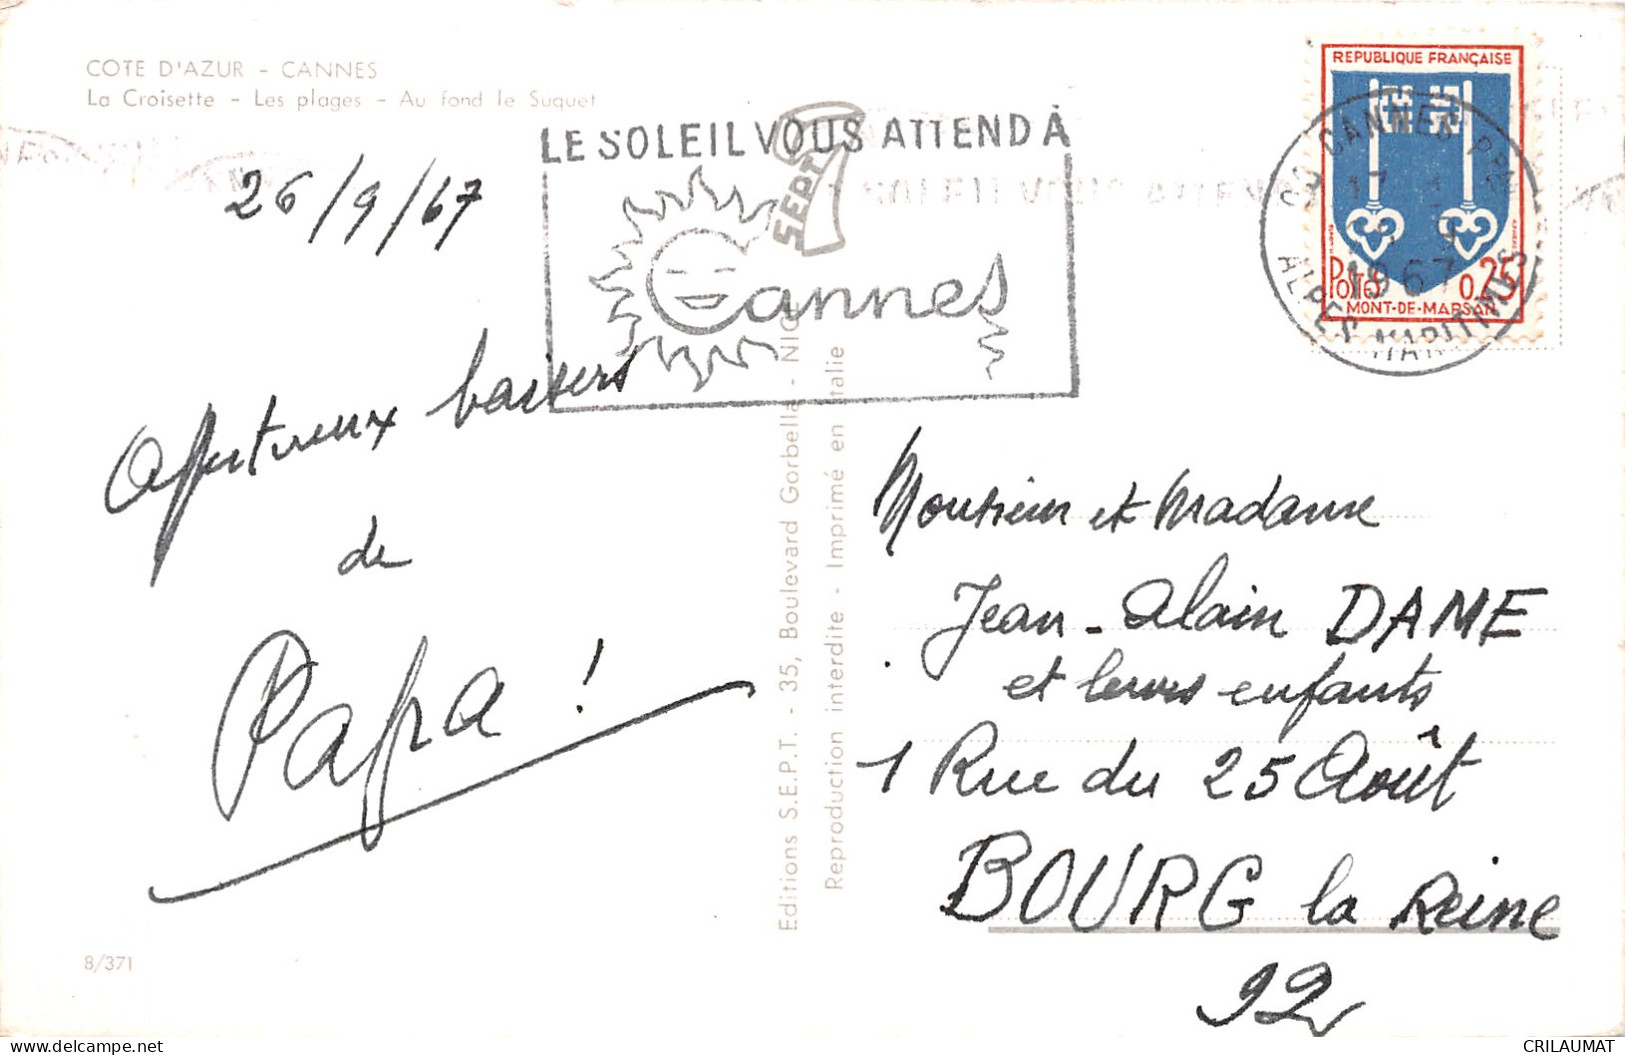 COTE D'AZUR - CANNES
La Croisette - Les plages - Au fond le Suquet
26/9/67
LE SOLEIL VOUS ATTEND À
Cannes
SEPT
REPUBLIQUE FRANÇAISE
Postes 0,25
MONT-DE-MARSAN
CANNES
17
1967
ALPES MARITIMES
Affectueux baisers
de
Papa !
Editions S.E.P.T. - 35, Boulevard Gorbella - NICE
Reproduction interdite - Imprimé en Italie
Monsieur et Madame
Jean-Alain DAME
et leurs enfants
1 Rue du 25 Août
BOURG la Reine
92
8/371
delcampe.net
CRILAUMAT